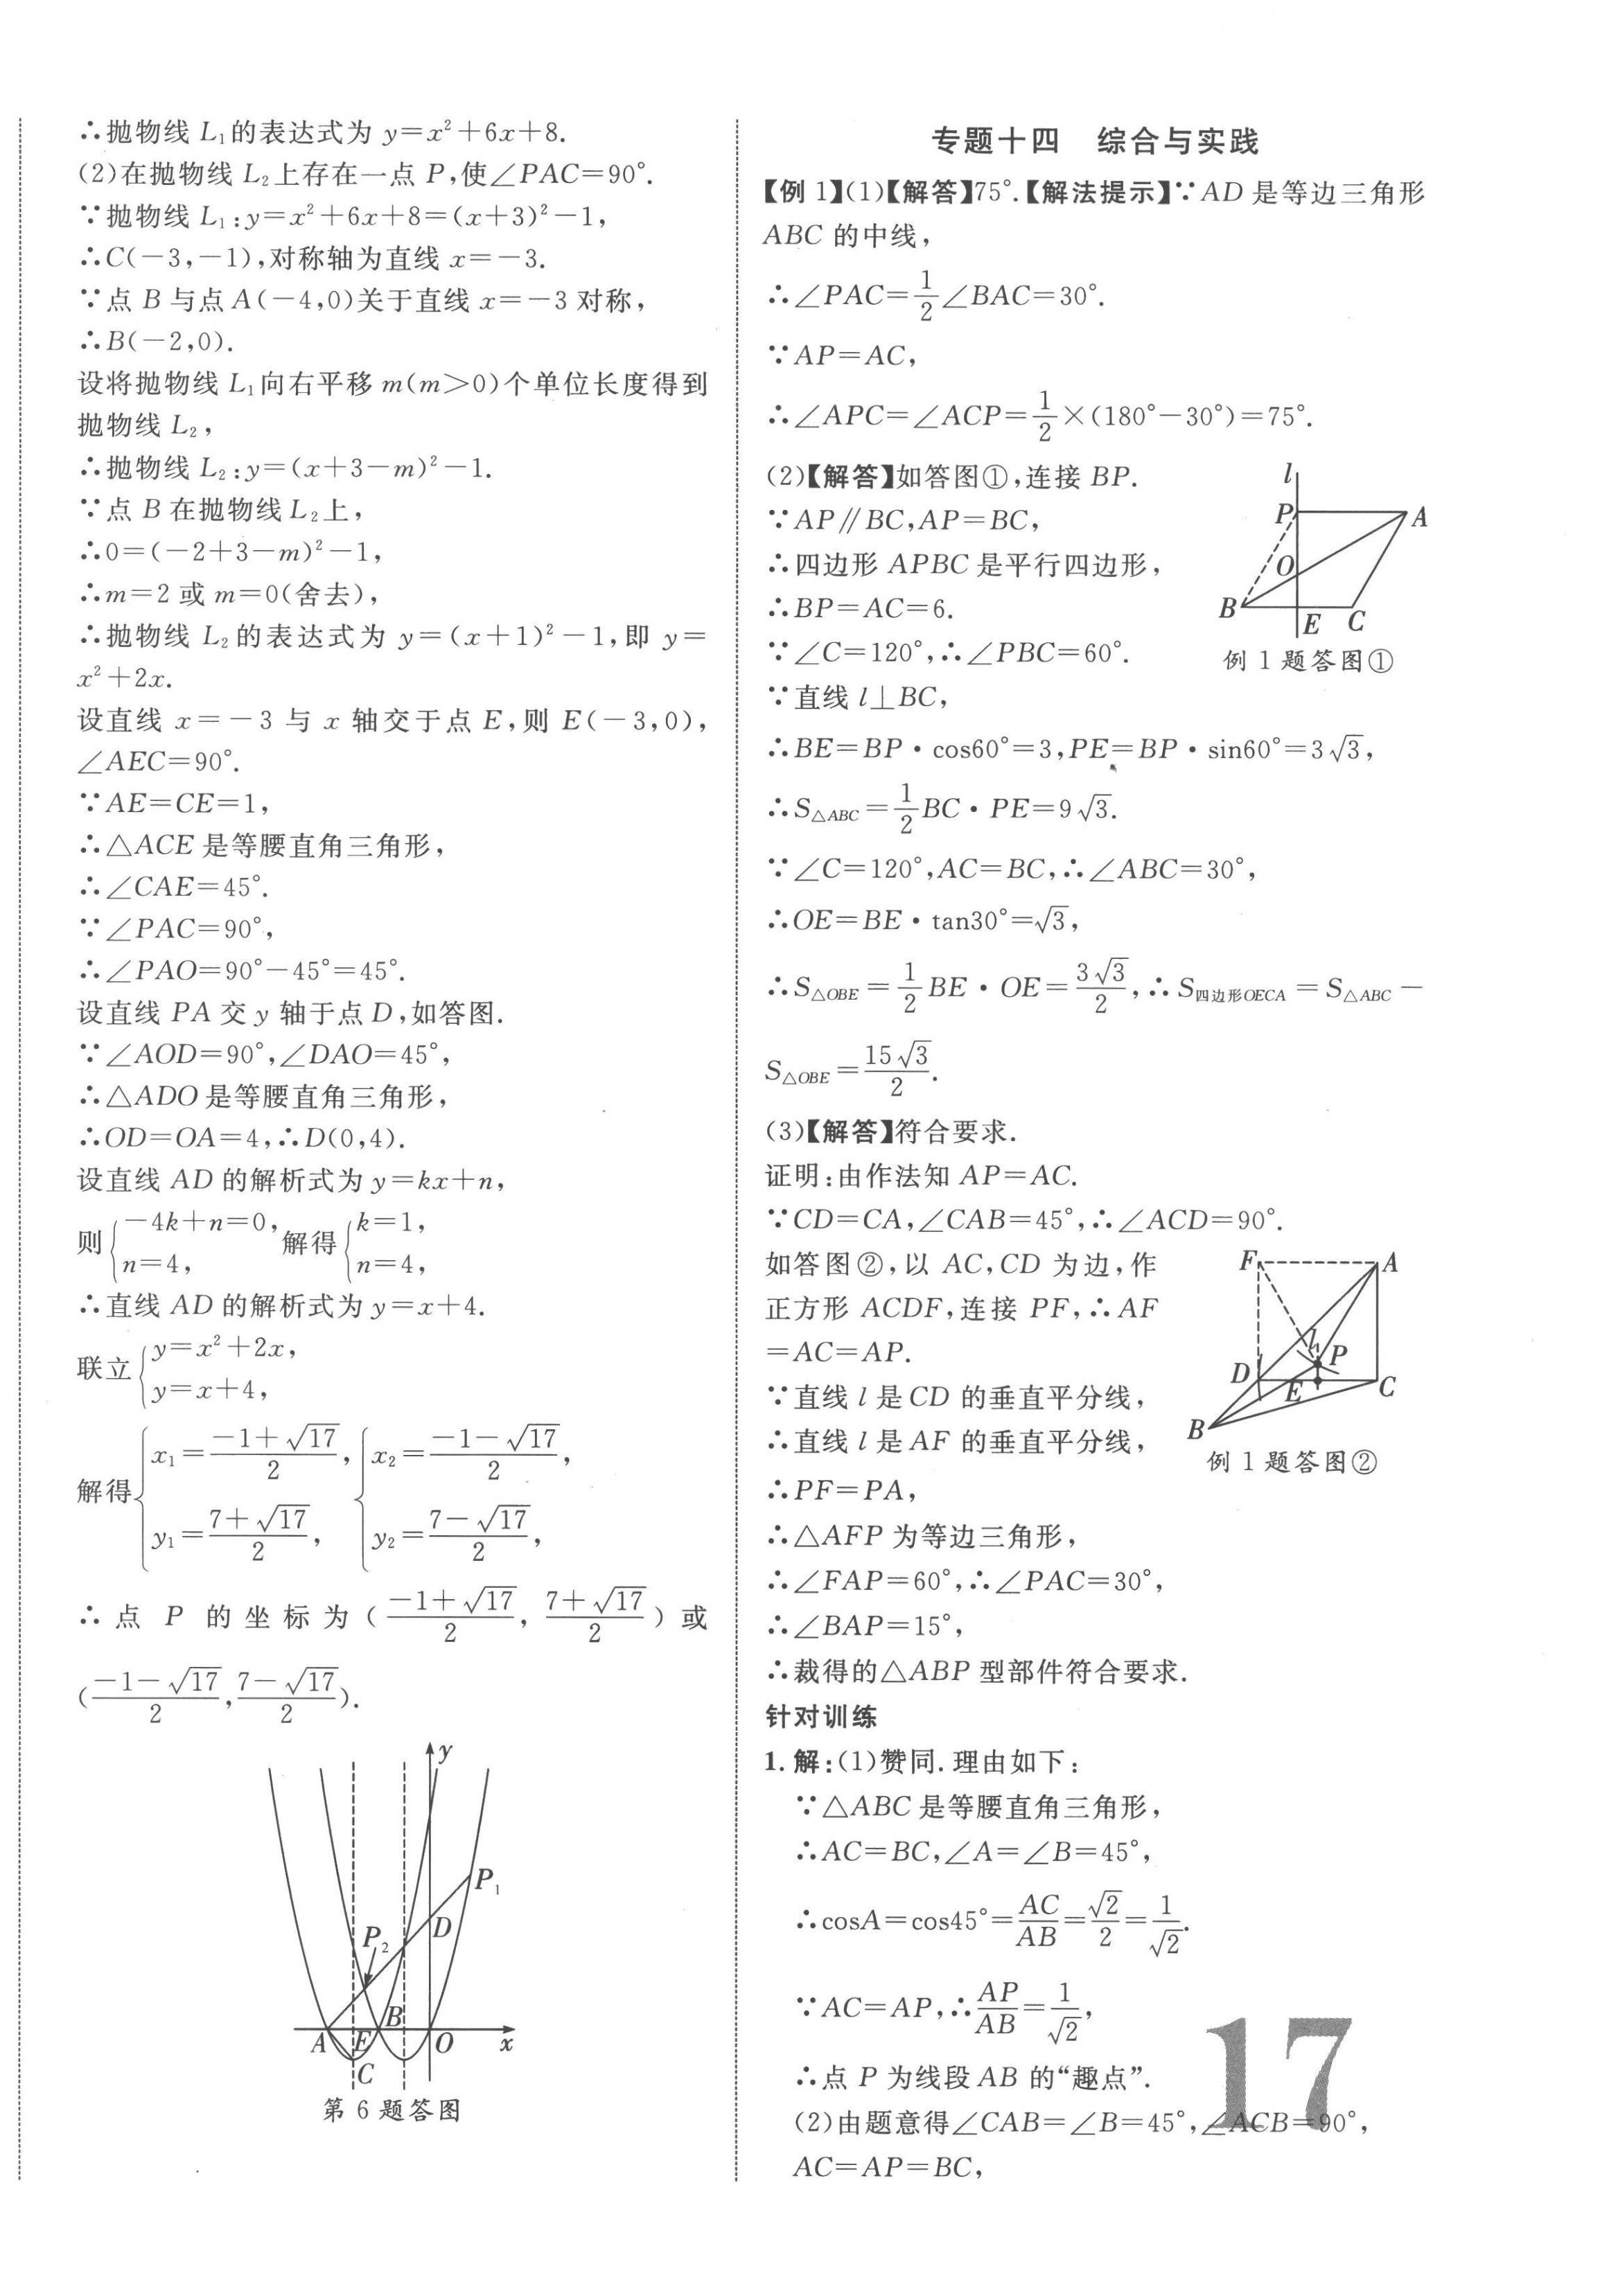 ∴抛物线 L₁的表达式为 y=x²+6x+8.
(2)在抛物线 L₂上存在一点 P,使∠PAC=90°.
∵抛物线 L₁:y=x²+6x+8=(x+3)²-1,
∴C(-3,-1),对称轴为直线 x=-3.
∵点 B 与点 A(-4,0)关于直线 x=-3 对称,
∴B(-2,0).
设将抛物线 L₁向右平移 m(m>0)个单位长度得到
抛物线 L₂,
∴抛物线 L₂:y=(x+3-m)²-1.
∵点 B 在抛物线 L₂上,
∴0=(-2+3-m)²-1,
∴m=2 或 m=0(舍去),
∴抛物线 L₂的表达式为 y=(x+1)²-1,即 y=
x²+2x.
设直线 x=-3 与 x 轴交于点 E,则 E(-3,0),
∠AEC=90°.
∵AE=CE=1,
∴△ACE 是等腰直角三角形,
∴∠CAE=45°.
∵∠PAC=90°,
∴∠PAO=90°-45°=45°.
设直线 PA 交 y 轴于点 D,如答图.
∵∠AOD=90°,∠DAO=45°,
∴△ADO 是等腰直角三角形,
∴OD=OA=4,∴D(0,4).
设直线 AD 的解析式为 y=kx+n,
则{-4k+n=0, n=4, 解得{k=1, n=4,
∴直线 AD 的解析式为 y=x+4.
联立{y=x²+2x, y=x+4,
解得{x₁=(-1+√17)/2, y₁=(7+√17)/2, {x₂=(-1-√17)/2, y₂=(7-√17)/2,
∴点 P 的坐标为((-1+√17)/2, (7+√17)/2)或
((-1-√17)/2,(7-√17)/2).
y
P₁
D
P₂
B
A E O x
C
第 6 题答图
专题十四 综合与实践
【例 1】(1)【解答】75°.【解法提示】∵AD 是等边三角形
ABC 的中线,
∴∠PAC=1/2∠BAC=30°.
∵AP=AC,
∴∠APC=∠ACP=1/2×(180°-30°)=75°.
(2)【解答】如答图①,连接 BP.
∵AP∥BC,AP=BC,
∴四边形 APBC 是平行四边形,
∴BP=AC=6.
∵∠C=120°,∴∠PBC=60°.
l
P A
O
B E C
例 1 题答图①
∵直线 l⊥BC,
∴BE=BP·cos60°=3,PE=BP·sin60°=3√3,
∴S△ABC=1/2BC·PE=9√3.
∵∠C=120°,AC=BC,∴∠ABC=30°,
∴OE=BE·tan30°=√3,
∴S△OBE=1/2BE·OE=3√3/2,∴S四边形OECA=S△ABC-
S△OBE=15√3/2.
(3)【解答】符合要求.
证明:由作法知 AP=AC.
∵CD=CA,∠CAB=45°,∴∠ACD=90°.
如答图②,以 AC,CD 为边,作
正方形 ACDF,连接 PF,∴AF
=AC=AP.
∵直线 l 是 CD 的垂直平分线,
∴直线 l 是 AF 的垂直平分线,
F A
l
P
D E C
B
例 1 题答图②
∴PF=PA,
∴△AFP 为等边三角形,
∴∠FAP=60°,∴∠PAC=30°,
∴∠BAP=15°,
∴裁得的△ABP 型部件符合要求.
针对训练
1.解:(1)赞同.理由如下:
∵△ABC 是等腰直角三角形,
∴AC=BC,∠A=∠B=45°,
∴cosA=cos45°=AC/AB=√2/2=1/√2.
∵AC=AP,∴AP/AB=1/√2,
∴点 P 为线段 AB 的“趣点”.
(2)由题意得∠CAB=∠B=45°,∠ACB=90°,
AC=AP=BC,
17